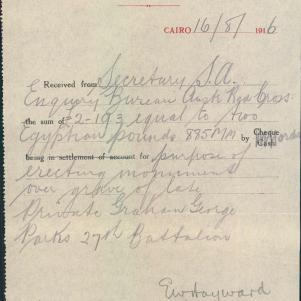 CAIRO 16/8/1916
Received from Secretary S.A.
Enquiry Bureau Aust. Red Cross
the sum of £2-19-3 equal to two
Egyptian pounds 885 M/M by Cheque
Cash
being in settlement of account for purpose of
erecting monument
over grave of late
Private Graham George
Parks 27th Battalion
E W Hayward